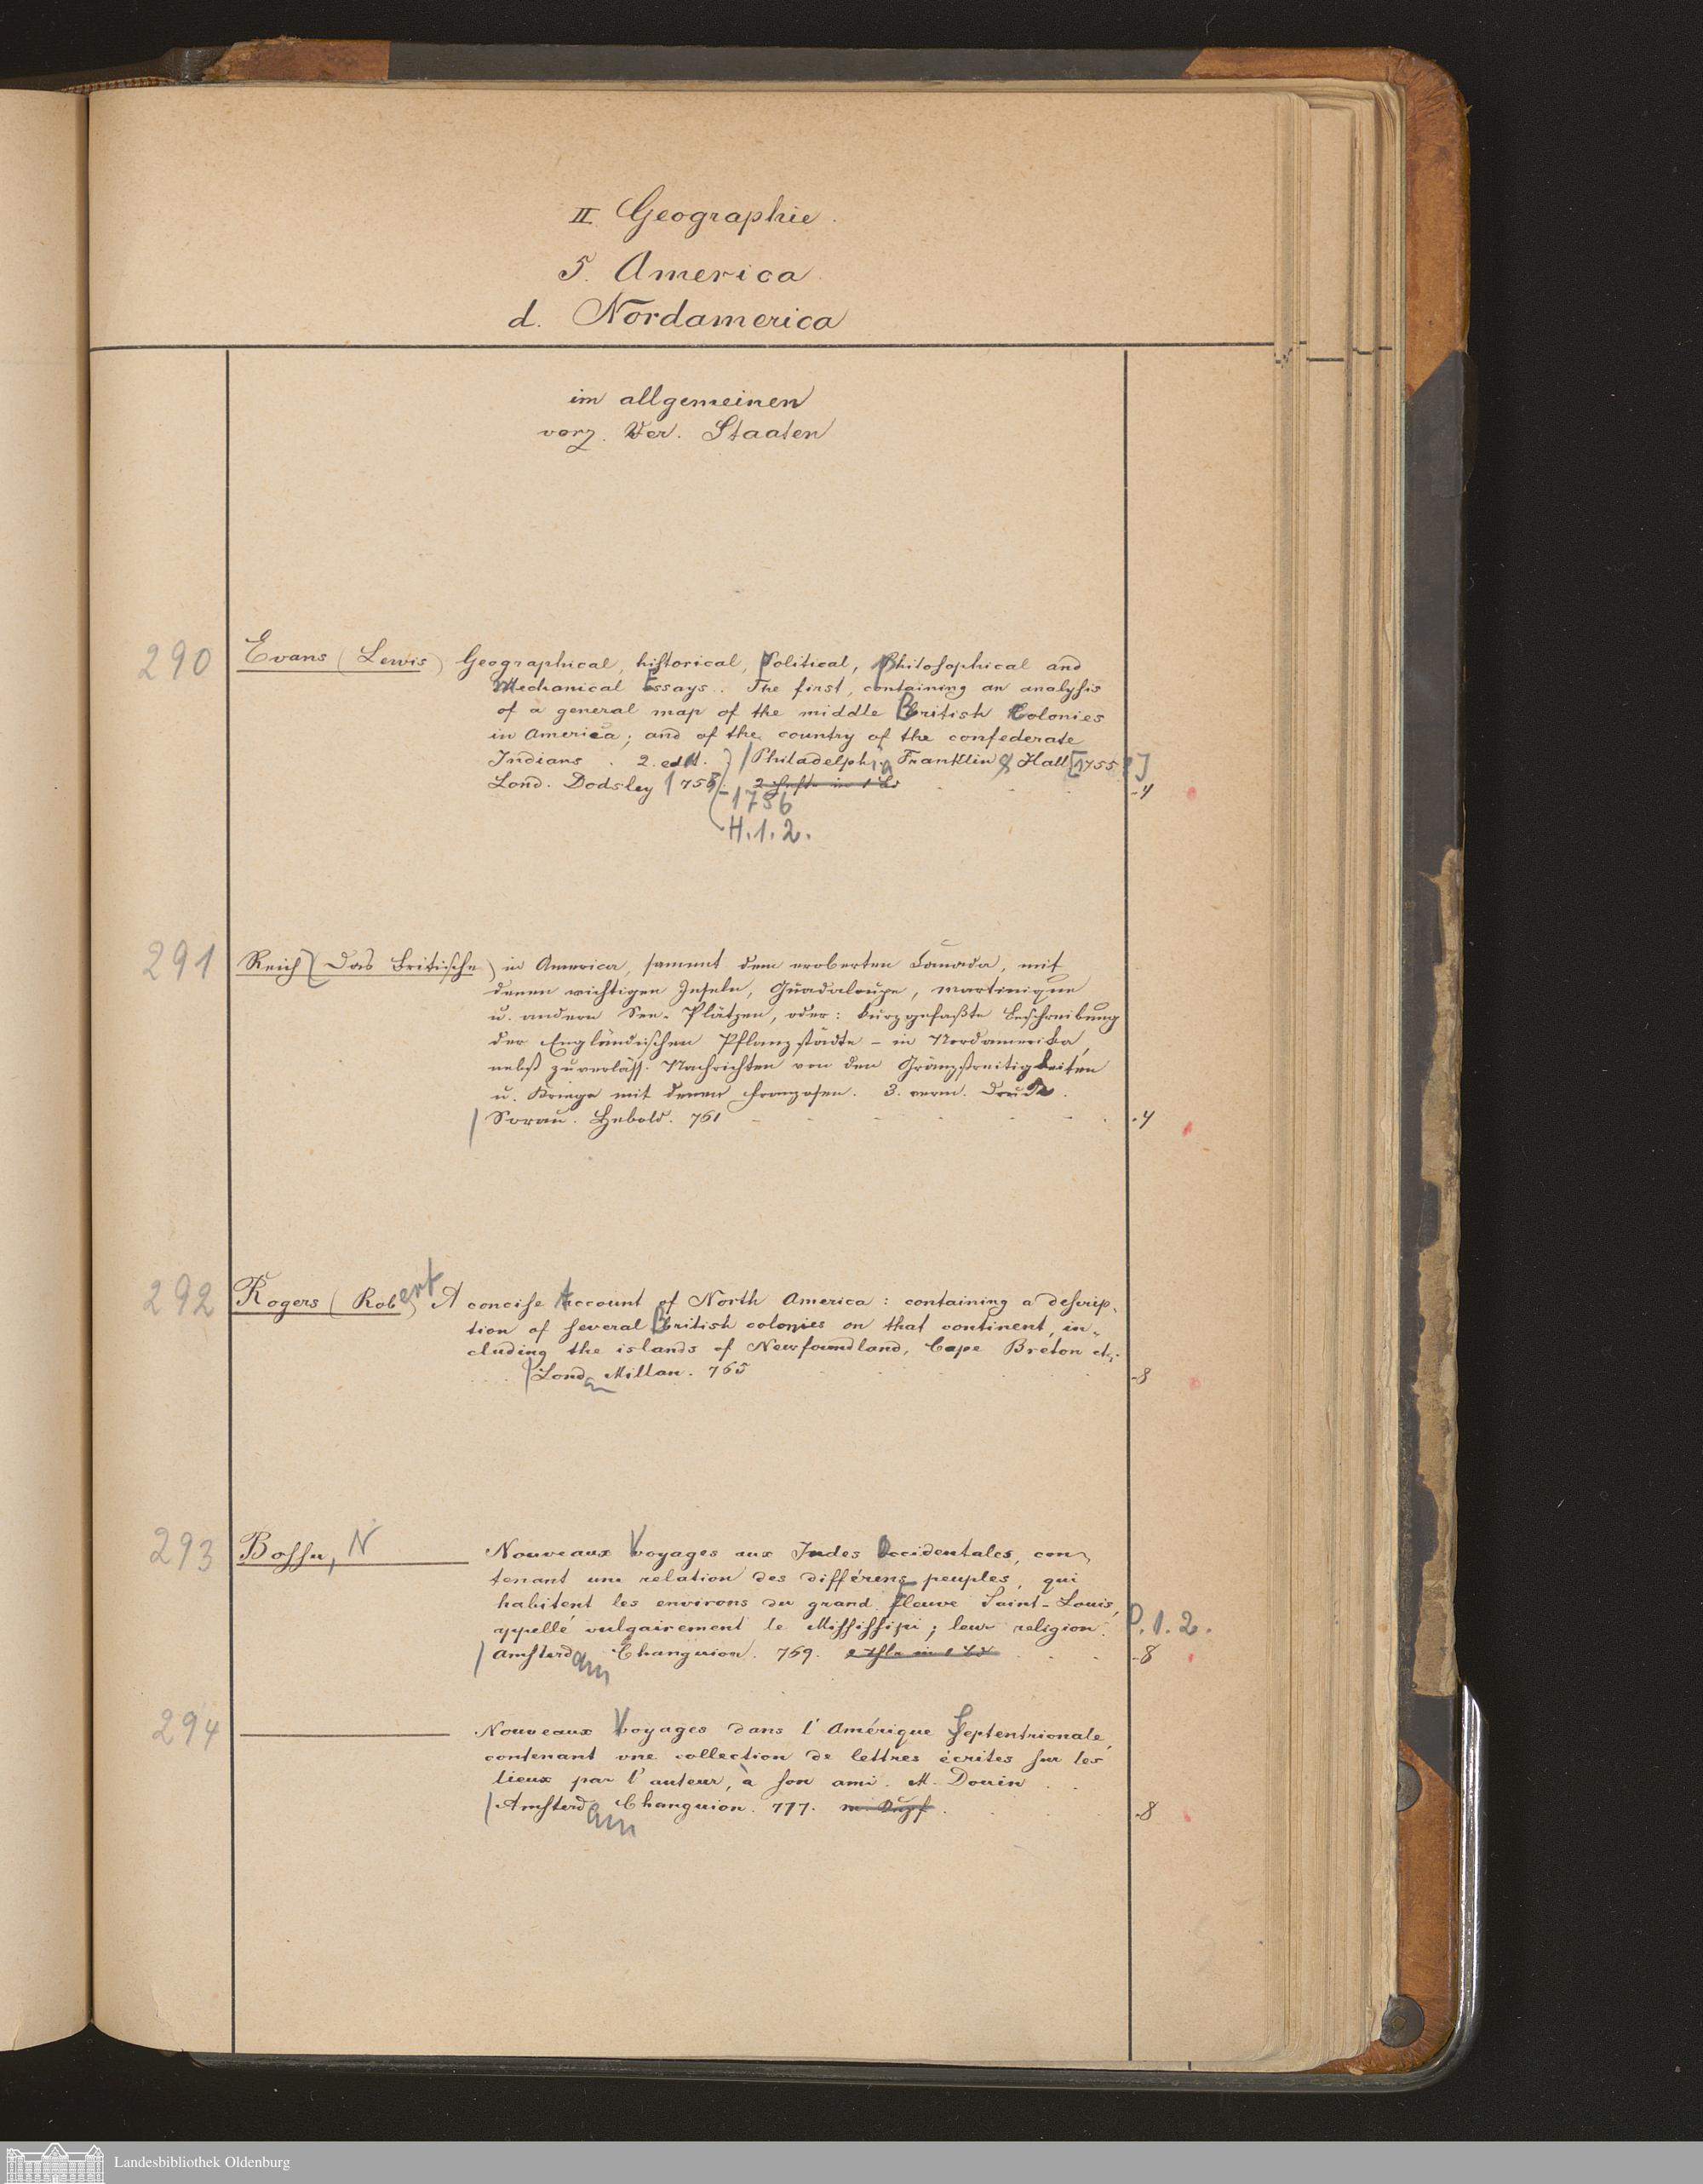 II. Geographie.
5. America
d. Nordamerica
im allgemeinen
vorz. Ver. Staaten
290 Evans (Lewis) Geographical, historical, Political, Philosophical and
Mechanical Essays. The first, containing an analysis
of a general map of the middle British Colonies
in America; and of the country of the confederate
Indians. 2. edit. Philadelphia Franklin & Hall [1755?]
Lond. Dodsley 1755 2 Hefte in 1 Bd -4
-1756
H.1.2.
291 Reich (Das Britische) in America, sammt dem eroberten Canada, mit
denen wichtigen Inseln, Guadaloupe, Martinique
u. andern See-Plätzen, oder: kurzgefaßte Beschreibung
der Engländischen Pflanzstädte – in Nordamerika,
nebst zuverläss. Nachrichten von den Gränzstreitigkeiten
u. Kriege mit denen Franzosen. 3. verm. Druck.
Sorau. Hebold. 761 -4
292 Rogers (Robert) A concise Account of North America: containing a descrip-
tion of several British colonies on that continent, in-
cluding the islands of Newfoundland, Cape Breton etc.
Lond. Millan. 765 -8
293 Bossu, N Nouveaux Voyages aux Indes Occidentales, con-
tenant une relation des différens peuples, qui
habitent les environs du grand fleuve Saint-Louis,
appellé vulgairement le Mississipi; leur religion. P.1.2.
Amsterdam Changuion. 769. 2 Thle in 1 Bd -8
294 Nouveaux Voyages dans l'Amérique Septentrionale,
contenant une collection de lettres écrites sur les
lieux par l'auteur, à son ami. M. Douin
Amsterdam Changuion. 777. m. Kupf. -8
Landesbibliothek Oldenburg